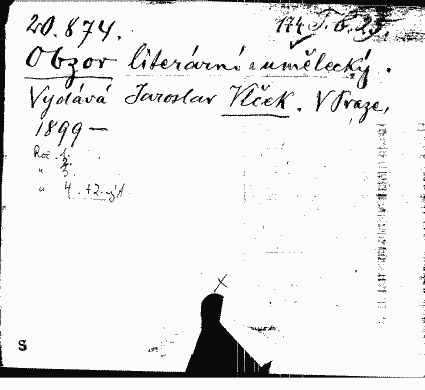 20.874. 174 T. 6. 25.
Obzor literární a umělecký.
Vydává Jaroslav Vlček. V Praze,
1899 —
Roč. 1.
" 3.
" 4. +2. výt.
S